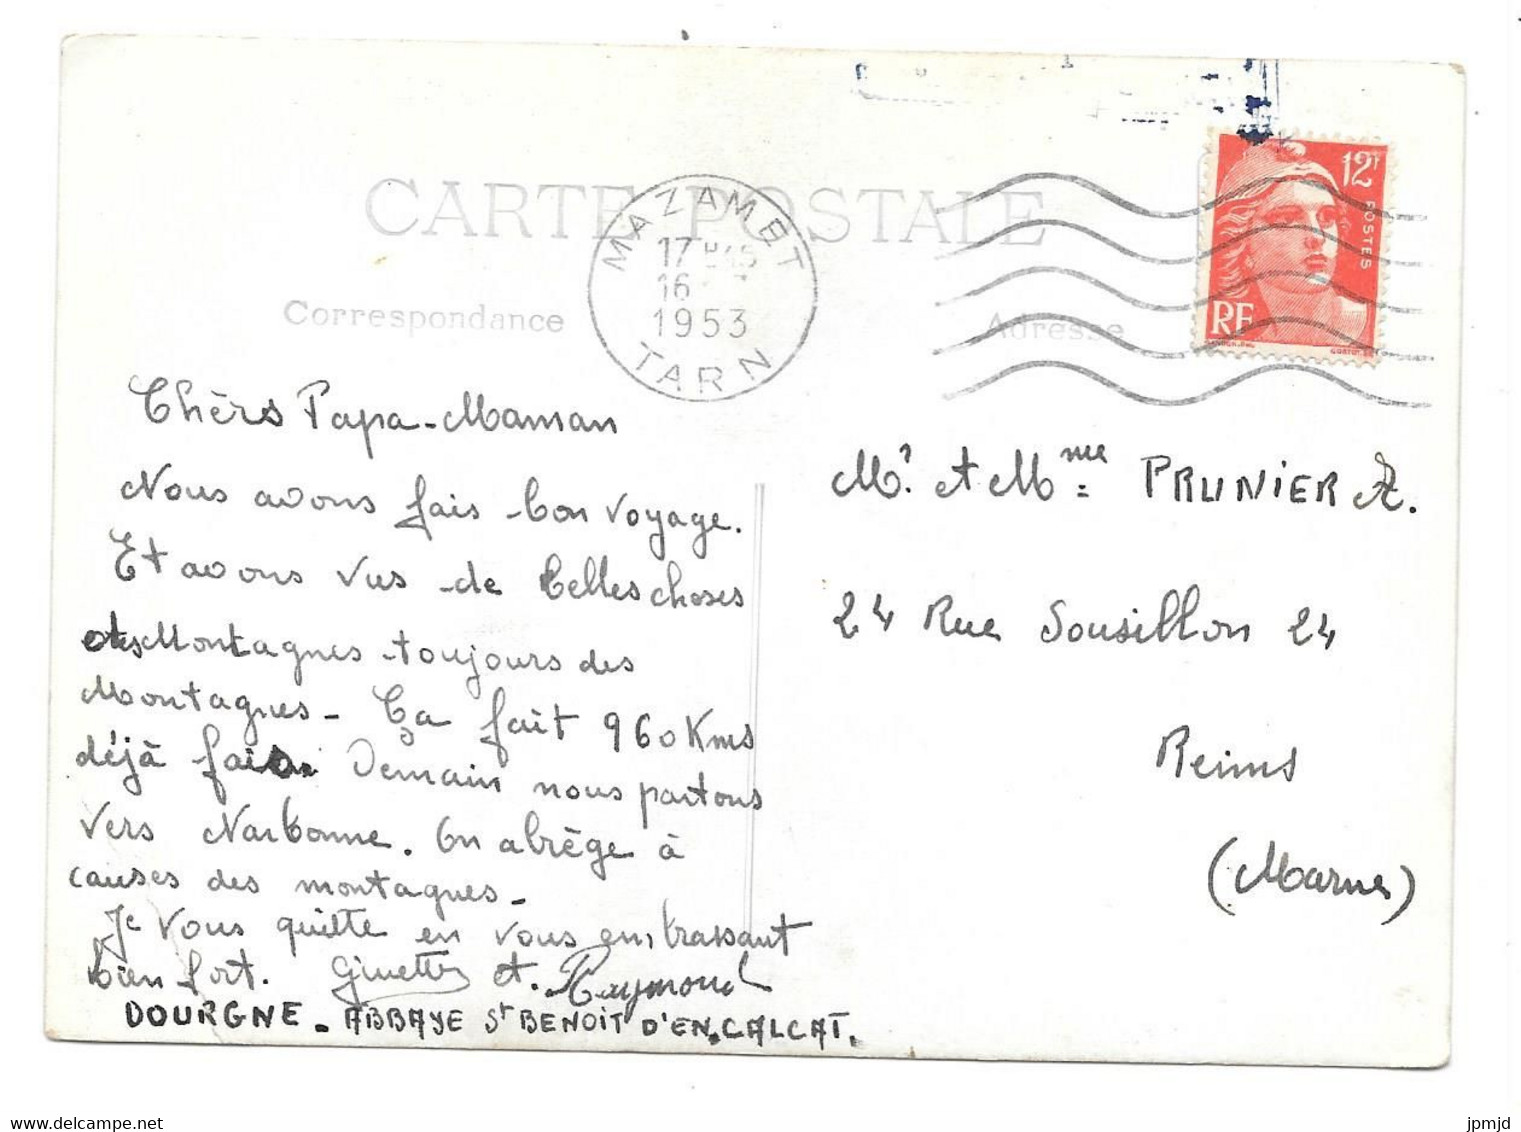 CARTE POSTALE
Correspondance
Adresse
MAZAMET
17H45
16
1953
TARN
12F
POSTES
RF
Chèrs Papa-Maman
Nous avons fais bon voyage.
Et avons vus de belles choses
Montagnes toujours des
Montagnes - Ça fait 960 Kms
déjà fais. Demain nous partons
vers Narbonne. On abrège à
causes des montagnes -
Je vous quitte en vous embrassant
bien fort. Ginette et Raymond
DOURGNE - ABBAYE St BENOIT D'EN.CALCAT.
Mr. et Mme PRUNIER A.
24 Rue Sousillon 24
Reims
(Marne)
www.delcampe.net
jpmjd